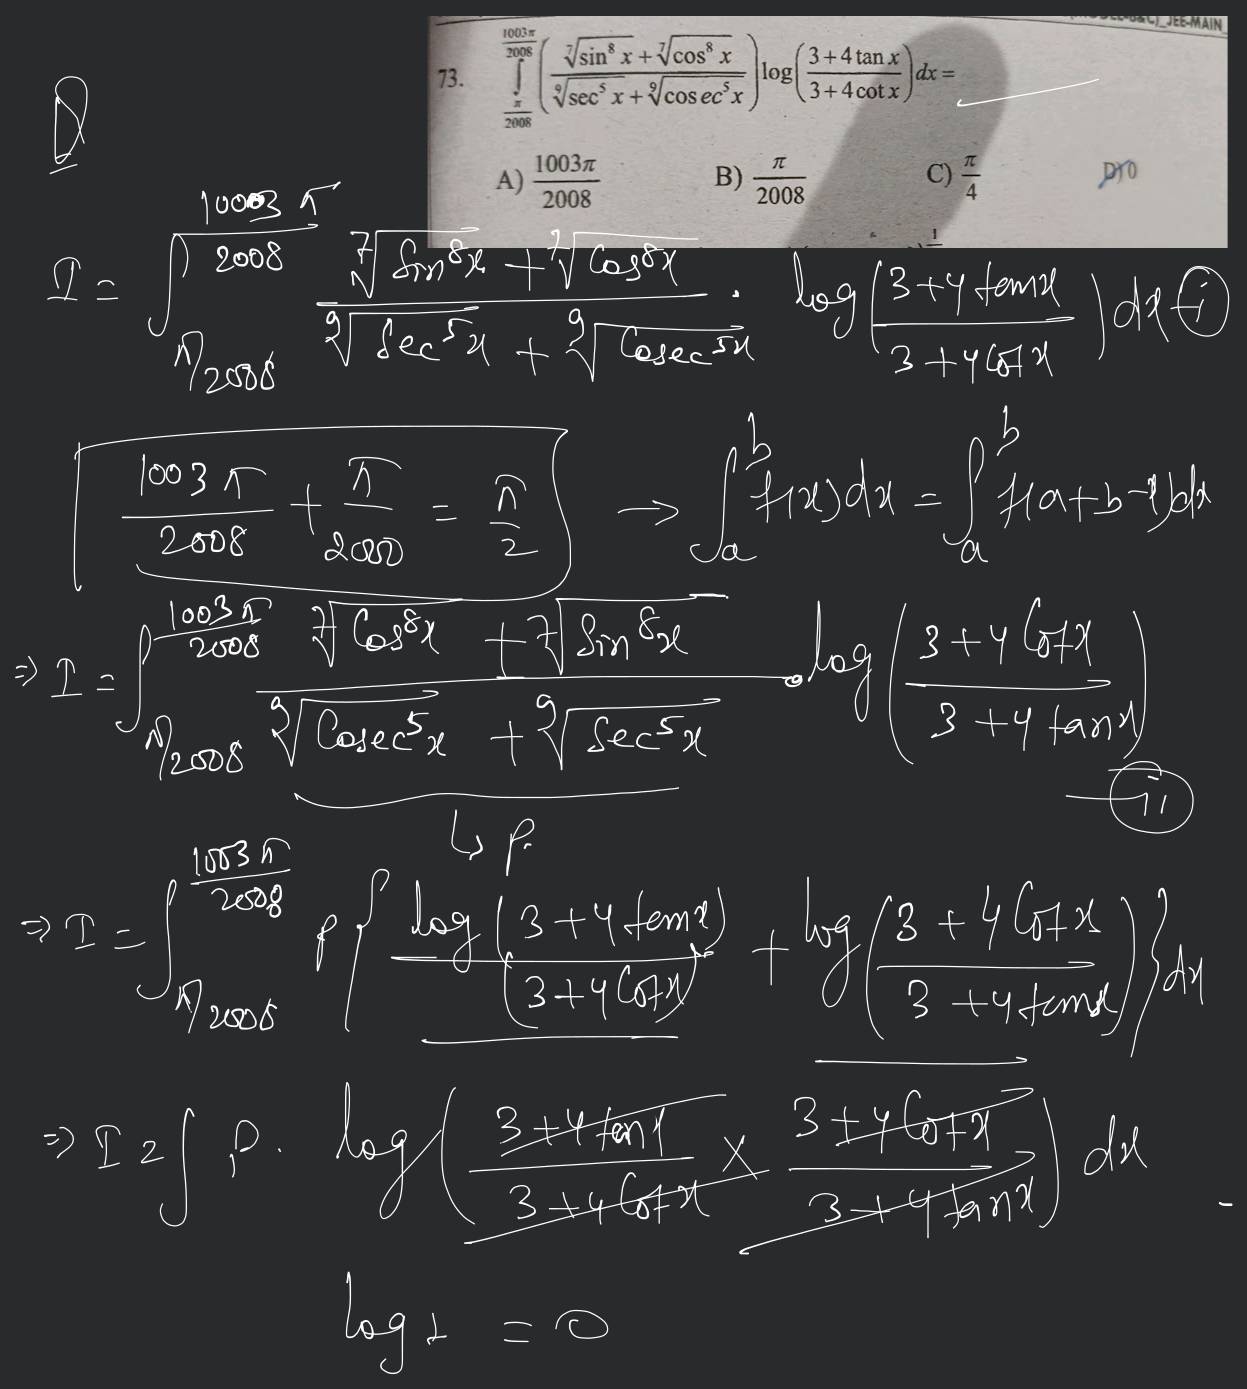 (MODEL-B&C)_JEE-MAIN_
73. ∫_{π/2008}^{1003π/2008} ( (⁷√sin⁸ x + ⁷√cos⁸ x) / (⁹√sec⁵ x + ⁹√cosec⁵x) ) log( (3+4 tan x) / (3+4 cot x) ) dx =
A) 1003π/2008 B) π/2008 C) π/4 D) 0
D
I = ∫_{π/2008}^{10003π/2008} (⁷√Sin⁸x + ⁷√Cos⁸x) / (⁹√Sec⁵x + ⁹√Cosec⁵x) . log( (3+4 tanx) / (3+4Cotx) ) dx —(i)
1003π/2008 + π/2000 = π/2 → ∫_a^b f(x)dx = ∫_a^b f(a+b-x)dx
⇒ I = ∫_{π/2008}^{1003π/2008} (⁷√Cos⁸x + ⁷√Sin⁸x) / (⁹√Cosec⁵x + ⁹√Sec⁵x) . log( (3+4Cotx) / (3+4 tanx) )
—(ii)
↳ P.
⇒ I = ∫_{π/2008}^{1003π/2008} P { log( (3+4 tanx) / (3+4Cotx) ) + log( (3+4Cotx) / (3+4tanx) ) } dx
⇒ I = ∫ P. log( (3+4 tanx) / (3+4Cotx) × (3+4Cotx) / (3+4 tanx) ) dx
log 1 = 0